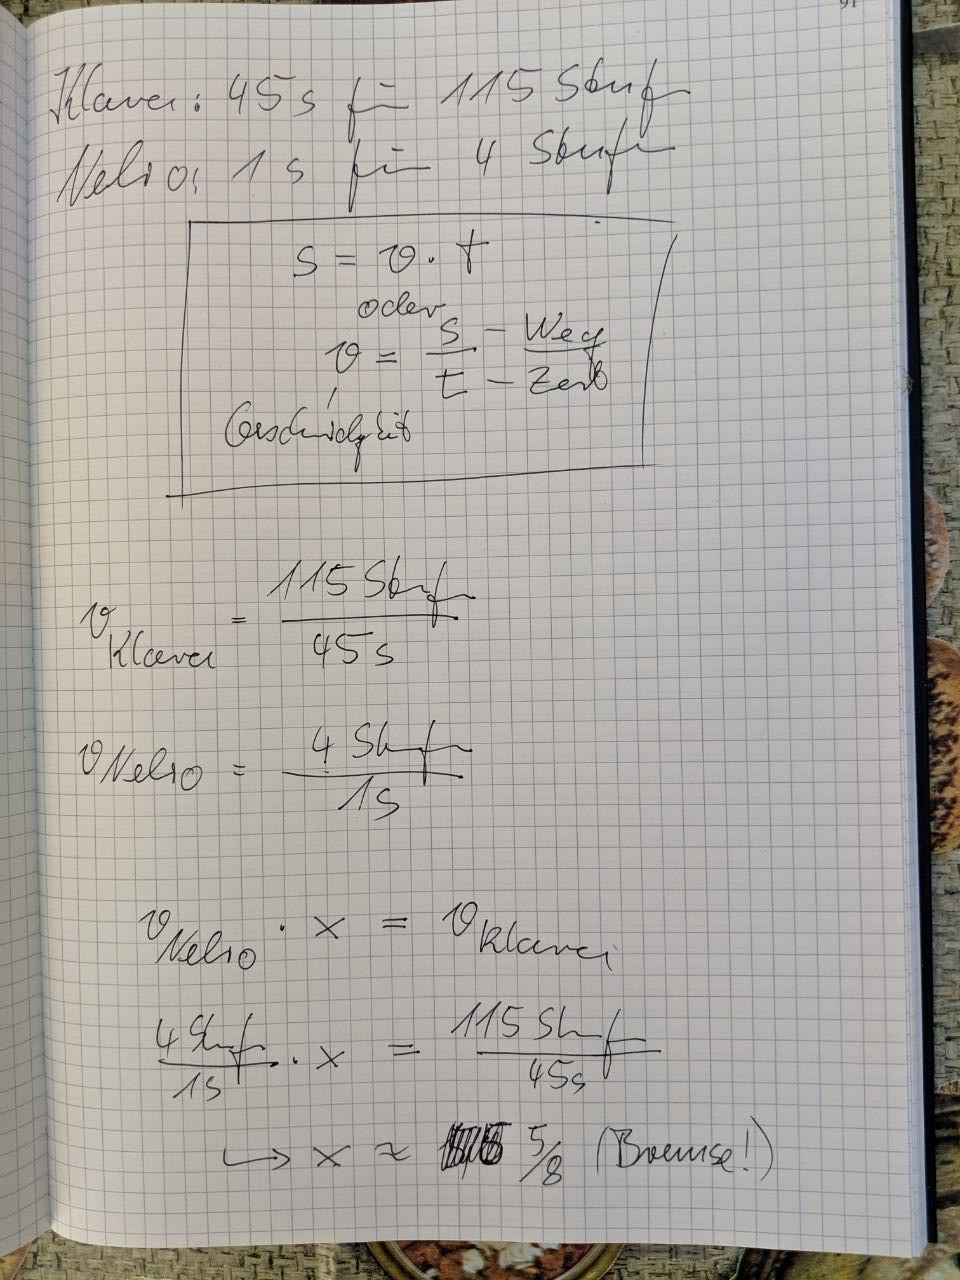 91
Klavei: 45 s für 115 Stufen
Nelio: 1 s für 4 Stufen
s = v · t
oder
v = s/t - Weg/Zeit
Geschwindigkeit
v Klavei = 115 Stufen / 45 s
v Nelio = 4 Stufen / 1s
v Nelio · x = v Klavei
4 Stufen / 1s · x = 115 Stufen / 45s
↳ x ≈ 5/8 (Bremse!)